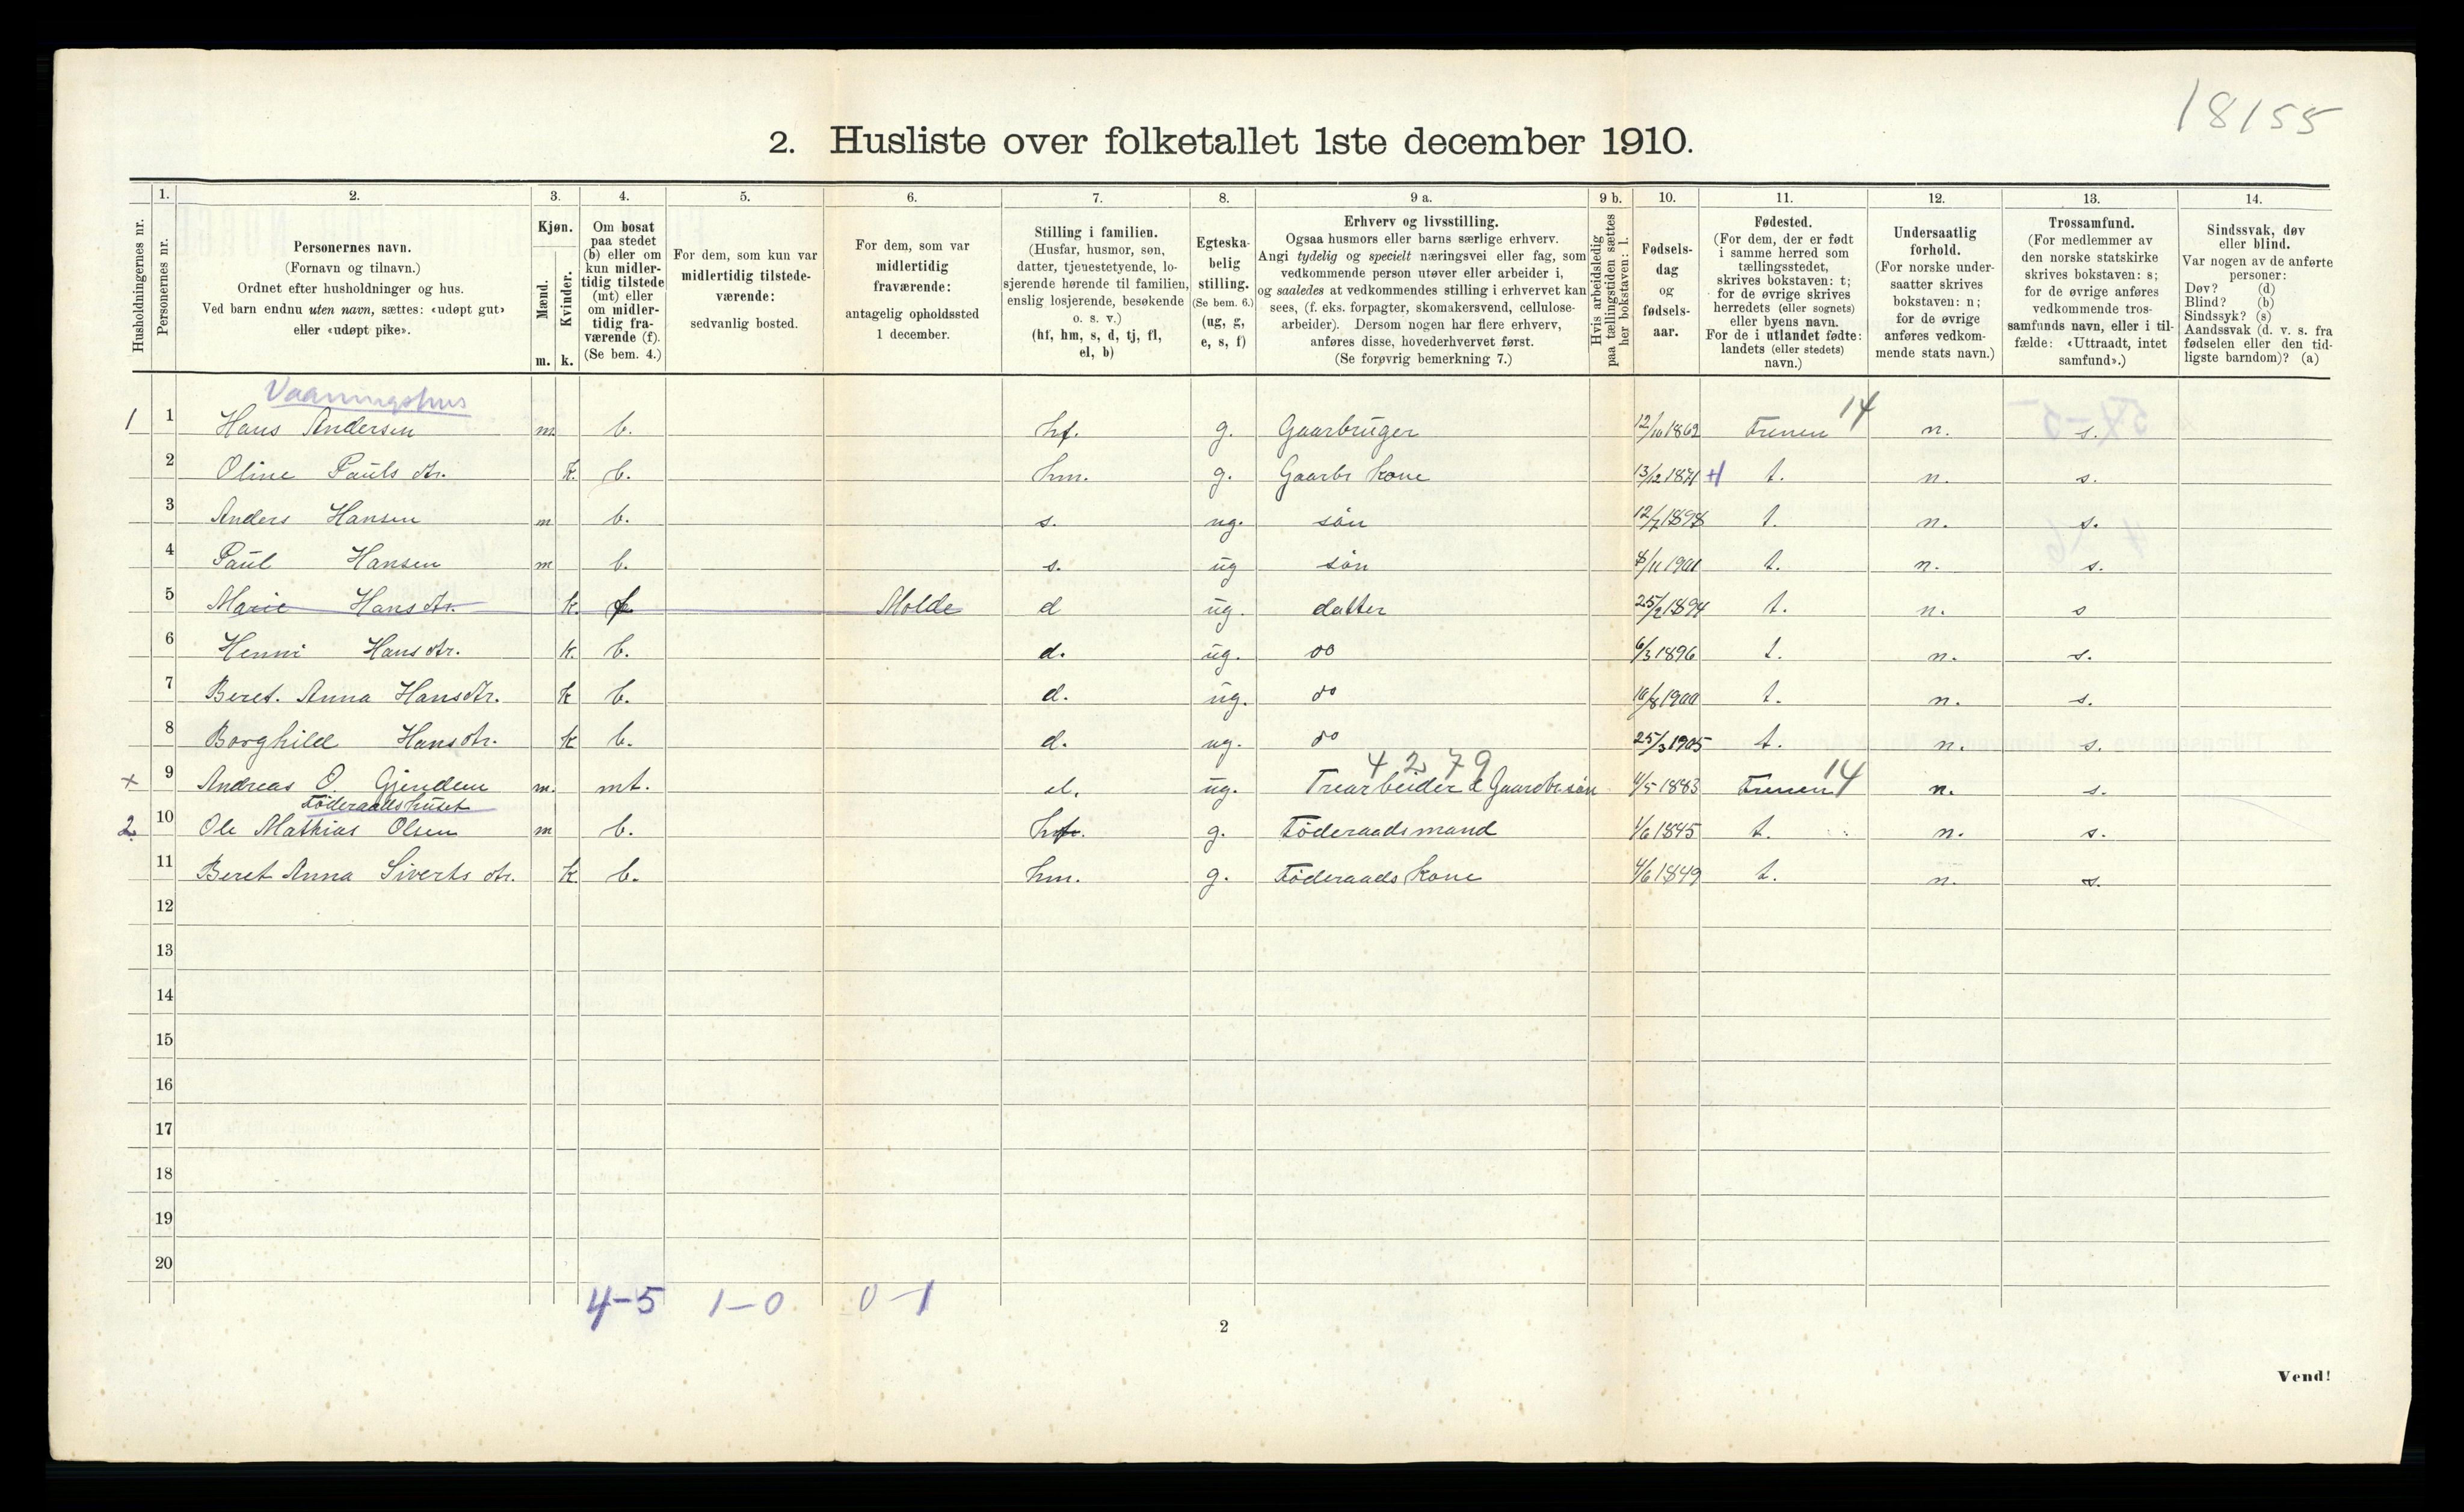 18155
2. Husliste over folketallet 1ste december 1910.
Husholdningernes nr.
1.
Personernes nr.
2.
Personernes navn.
(Fornavn og tilnavn.)
Ordnet efter husholdninger og hus.
Ved barn endnu uten navn, sættes: «udøpt gut»
eller «udøpt pike».
3.
Kjøn.
Mænd.
Kvinder.
m. k.
4.
Om bosat
paa stedet
(b) eller om
kun midler-
tidig tilstede
(mt) eller
om midler-
tidig fra-
værende (f).
(Se bem. 4.)
5.
For dem, som kun var
midlertidig tilstede-
værende:
sedvanlig bosted.
6.
For dem, som var
midlertidig
fraværende:
antagelig opholdssted
1 december.
7.
Stilling i familien.
(Husfar, husmor, søn,
datter, tjenestetyende, lo-
sjerende hørende til familien,
enslig losjerende, besøkende
o. s. v.)
(hf, hm, s, d, tj, fl,
el, b)
8.
Egteska-
belig
stilling.
(Se bem. 6.)
(ug, g,
e, s, f)
9 a.
Erhverv og livsstilling.
Ogsaa husmors eller barns særlige erhverv.
Angi tydelig og specielt næringsvei eller fag, som
vedkommende person utøver eller arbeider i,
og saaledes at vedkommendes stilling i erhvervet kan
sees, (f. eks. forpagter, skomakersvend, cellulose-
arbeider). Dersom nogen har flere erhverv,
anføres disse, hovederhvervet først.
(Se forøvrig bemerkning 7.)
9 b.
Hvis arbeidsledig
paa tællingstiden sættes
her bokstaven: l.
10.
Fødsels-
dag
og
fødsels-
aar.
11.
Fødested.
(For dem, der er født
i samme herred som
tællingsstedet,
skrives bokstaven: t;
for de øvrige skrives
herredets (eller sognets)
eller byens navn.
For de i utlandet fødte:
landets (eller stedets)
navn.)
12.
Undersaatlig
forhold.
(For norske under-
saatter skrives
bokstaven: n;
for de øvrige
anføres vedkom-
mende stats navn.)
13.
Trossamfund.
(For medlemmer av
den norske statskirke
skrives bokstaven: s;
for de øvrige anføres
vedkommende tros-
samfunds navn, eller i til-
fælde: «Uttraadt, intet
samfund».)
14.
Sindssvak, døv
eller blind.
Var nogen av de anførte
personer:
Døv? (d)
Blind? (b)
Sindssyk? (s)
Aandssvak (d. v. s. fra
fødselen eller den tid-
ligste barndom)? (a)
Vaaningshus
1 1 Hans Andersen m. b. hf. g. Gaarbruger 12/10 1862 Frenen 14 n. s.
2 Oline Pauls dtr. k. b. hm. g. Gaarbr kone 13/12 1871 t. n. s.
3 Anders Hansen m b. s. ug. søn 12/7 1898 t. n. s.
4 Paul Hansen m b. s. ug søn 8/11 1901 t. n. s.
5 Marie Hans dtr. k. f Molde d ug. datter 25/2 1894 t. n. s
6 Henni Hans dtr. k. b. d. ug. do 6/3 1896 t. n. s.
7 Beret. Anna Hansdtr. k b. d. ug. do 10/8 1900 t. n. s.
8 Borghild Hansdtr. k b. d. ug. do 25/3 1905 t. n. s.
4279
x 9 Andreas O. Gjendem m. mt. el. ug. Træarbeider & Gaardbr.søn 4/5 1883 Frenen 14 n. s.
Føderaadshuset
2 10 Ole Mathias Olsen m b. hf. g. Føderaadsmand 1/6 1845 t. n. s.
11 Beret Anna Siverts dtr. k b. hm. g. Føderaads kone 4/6 1849 t. n. s.
12
13
14
15
16
17
18
19
20
4-5 1-0 0-1
2
Vend!